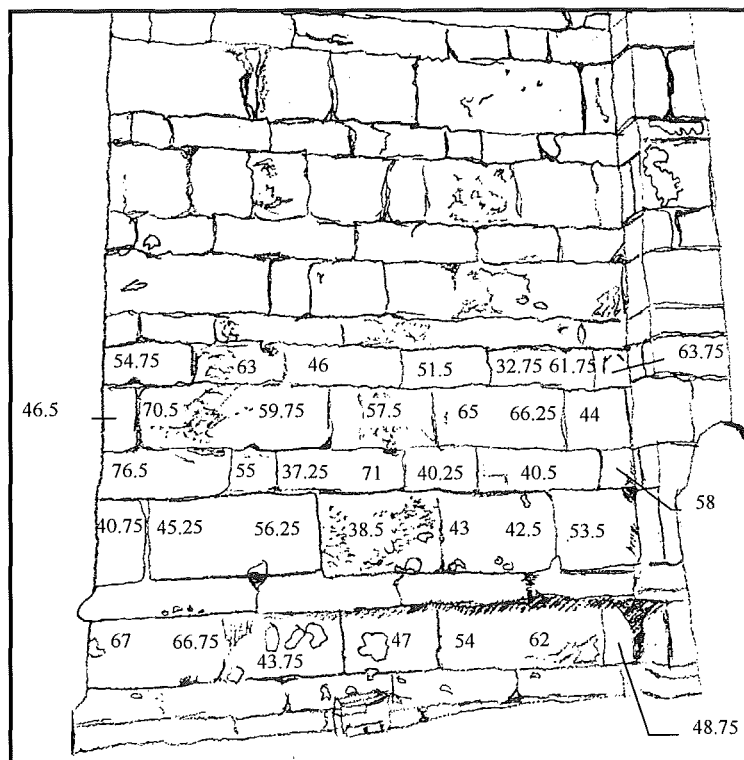 54.75 63 46 51.5 32.75 61.75 63.75
46.5 70.5 59.75 57.5 65 66.25 44
76.5 55 37.25 71 40.25 40.5 58
40.75 45.25 56.25 38.5 43 42.5 53.5
67 66.75 43.75 47 54 62 48.75